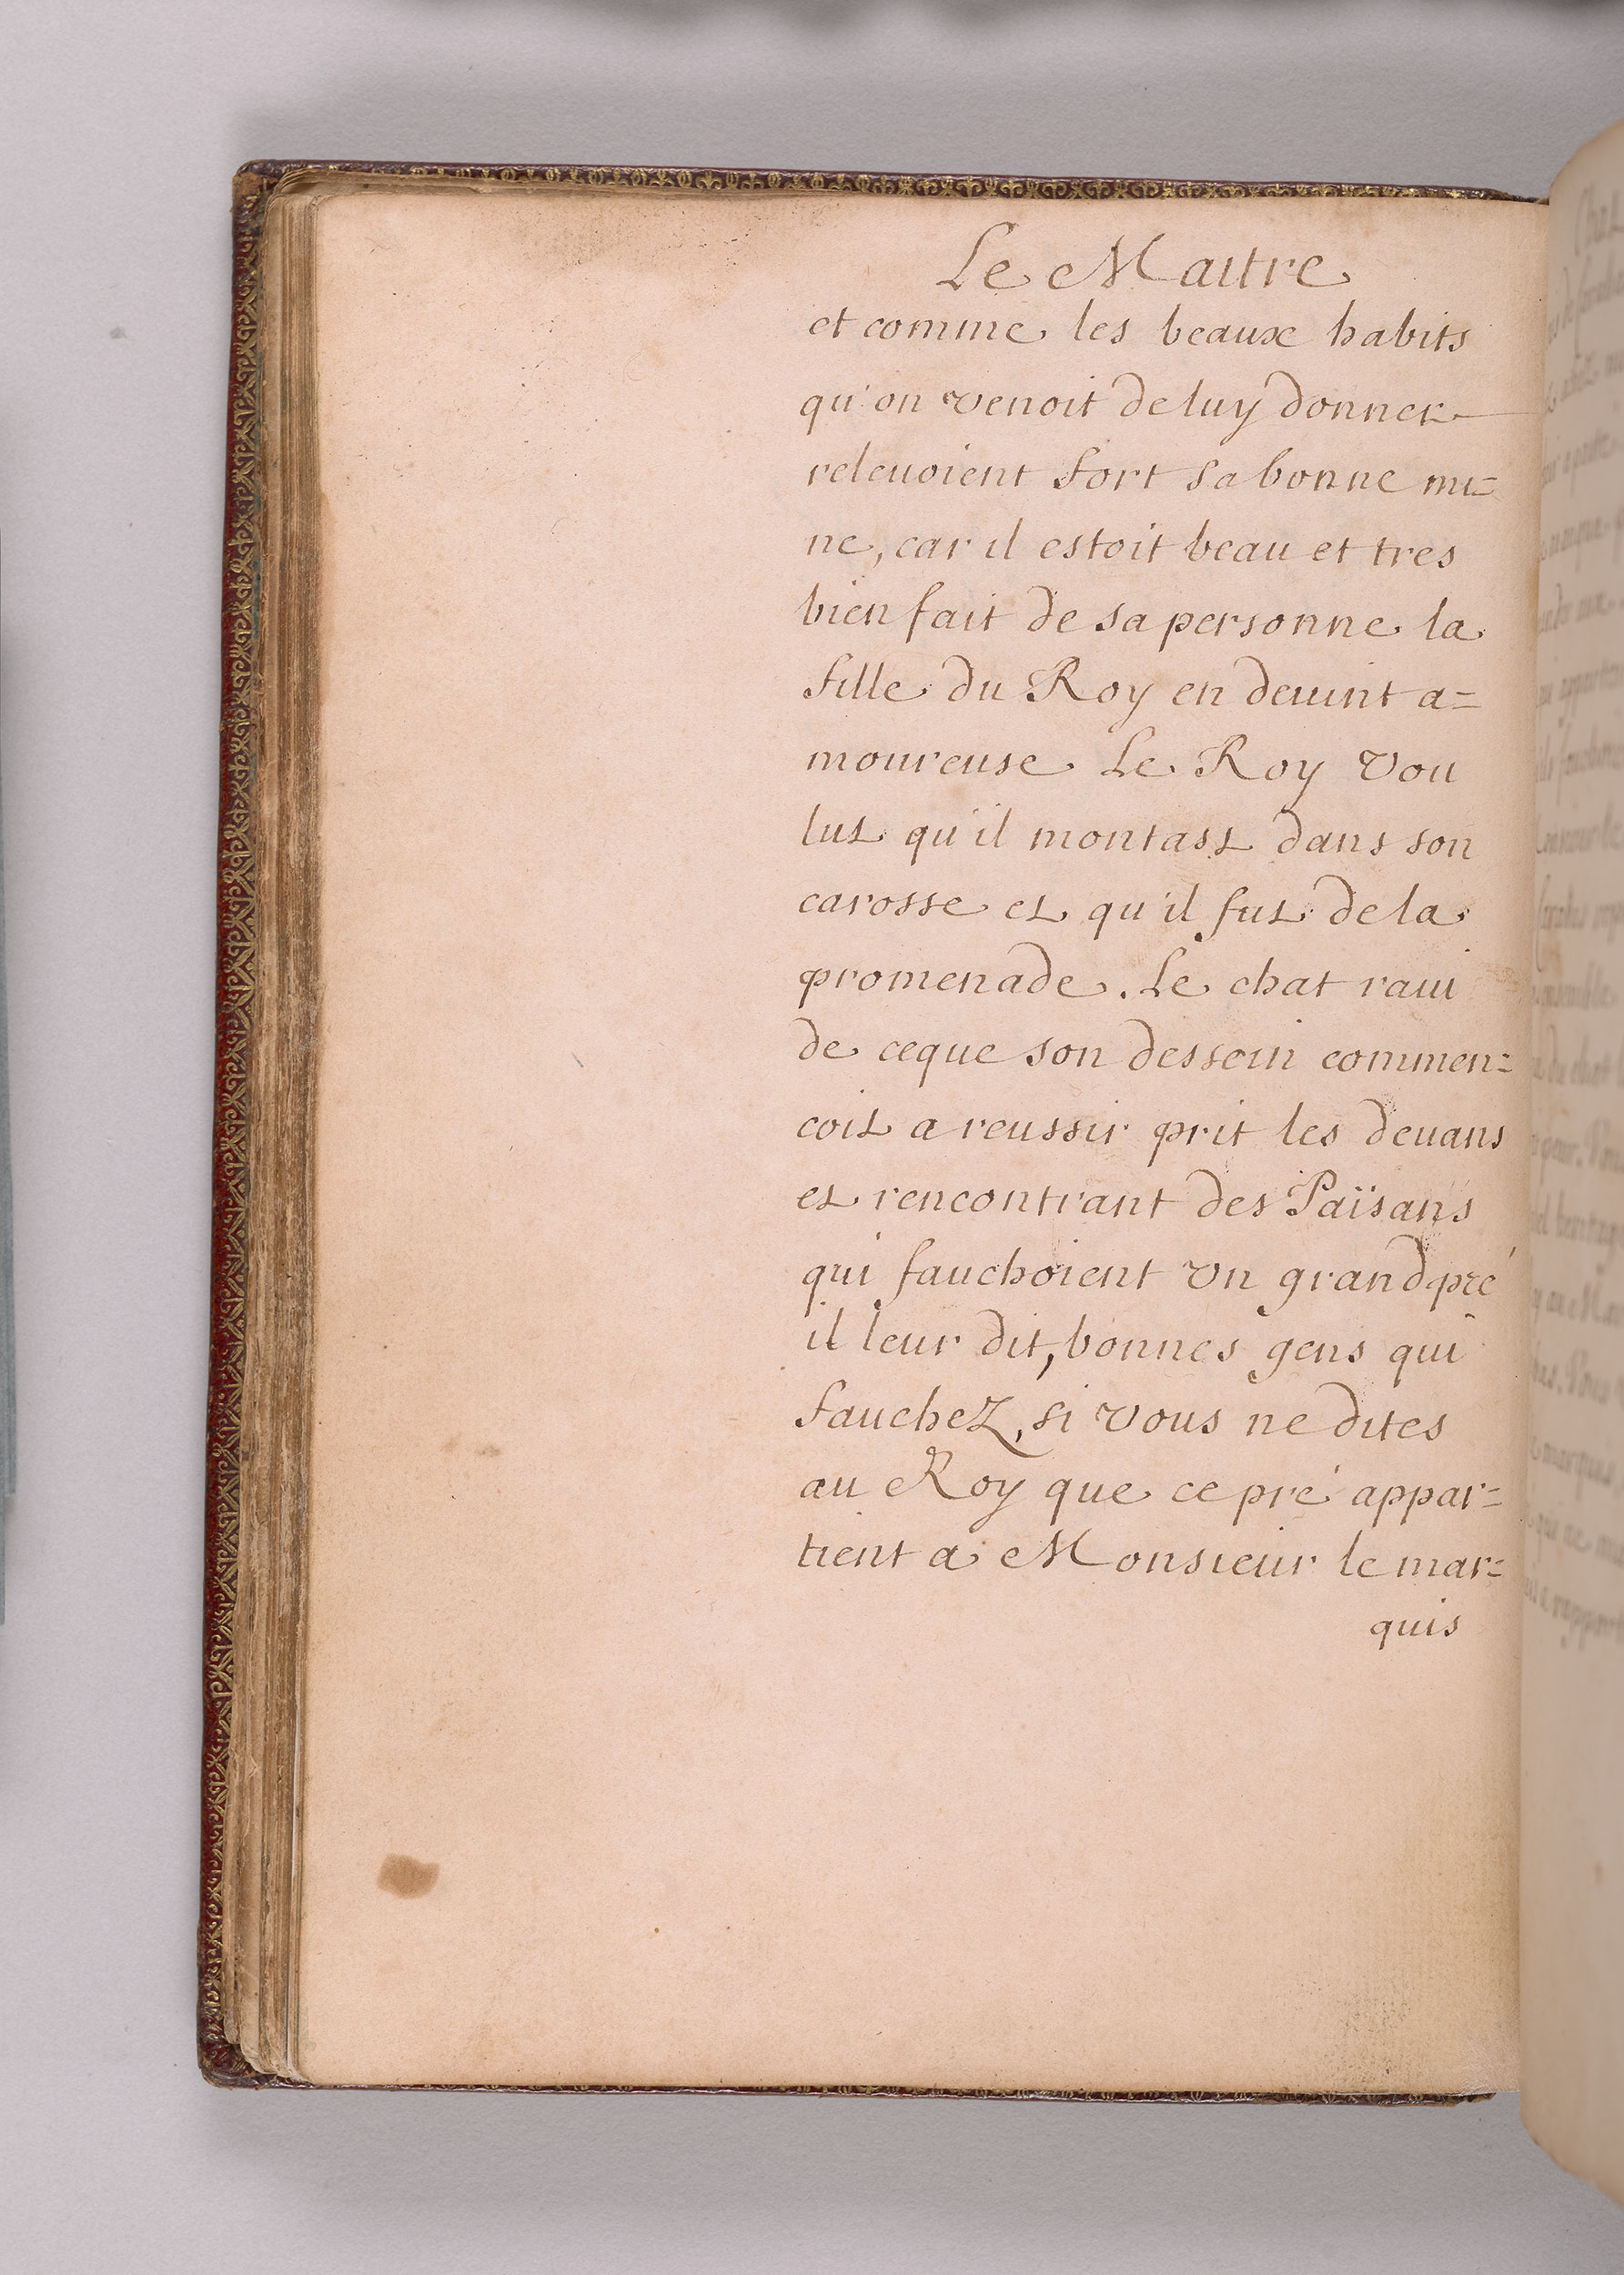 Le Maitre
et comme les beaux habits
qu'on venoit de luy donner
releuoient fort sa bonne mi=
ne, car il estoit beau et tres
bien fait de sa personne la
fille du Roy en deuint a=
moureuse Le Roy vou
lut qu'il montast dans son
carosse et qu'il fut de la
promenade. Le chat raui
de ceque son dessein commen=
coit a reussir prit les deuans
et rencontrant des Païsans
qui fauchoient vn grand pré
il leur dit, bonnes gens qui
fauchez, si vous ne dites
au Roy que ce pré appar=
tient a Monsieur le mar=
quis